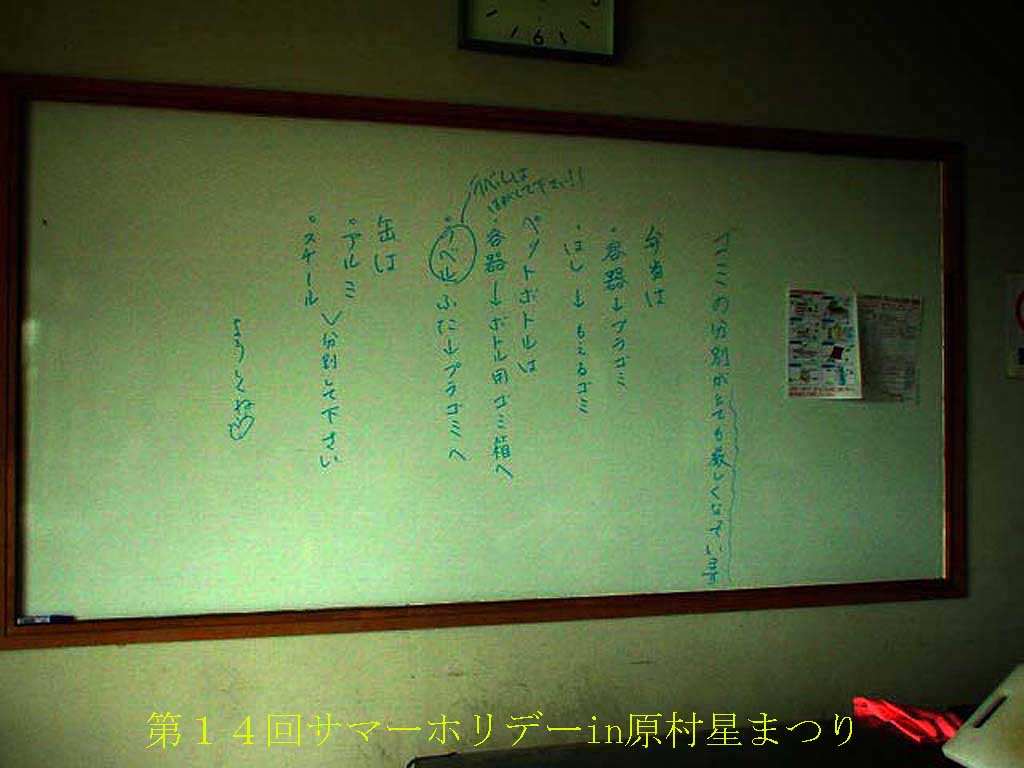 ゴミの分別がとても厳しくなっています
弁当は
・容器→プラゴミ
・はし→もえるゴミ
ペットボトルは
・容器→ボトル用ゴミ箱へ
・ラベル ふた→プラゴミへ
ラベルは
はがして下さい!!
缶は
・アルミ
・スチール
分別して下さい
よろしくね♡
6
第１４回サマーホリデーin原村星まつり